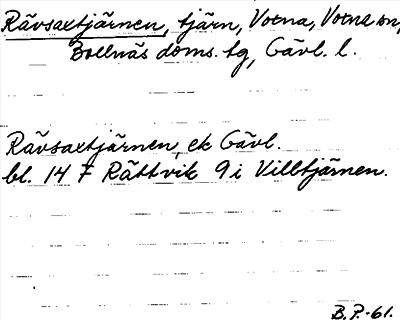 Rävsaxtjärnen, tjärn, Voxna, Voxna sn,
Bollnäs doms. tg, Gävl. l.
Rävsaxtjärnen, ek Gävl.
bl. 14 F Rättvik 9 i Villtjärnen.
B.P.-61.